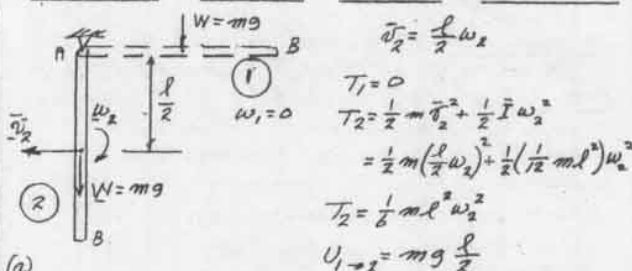 W = mg
A
B
1
l/2
ω₂
ω₁ = 0
v̄₂
W = mg
2
B
(a)
v̄₂ = l/2 ω₂
T₁ = 0
T₂ = 1/2 m v̄₂² + 1/2 Ī ω₂²
= 1/2 m(l/2 ω₂)² + 1/2(1/12 ml²)ω₂²
T₂ = 1/6 ml²ω₂²
U₁→₂ = mg l/2